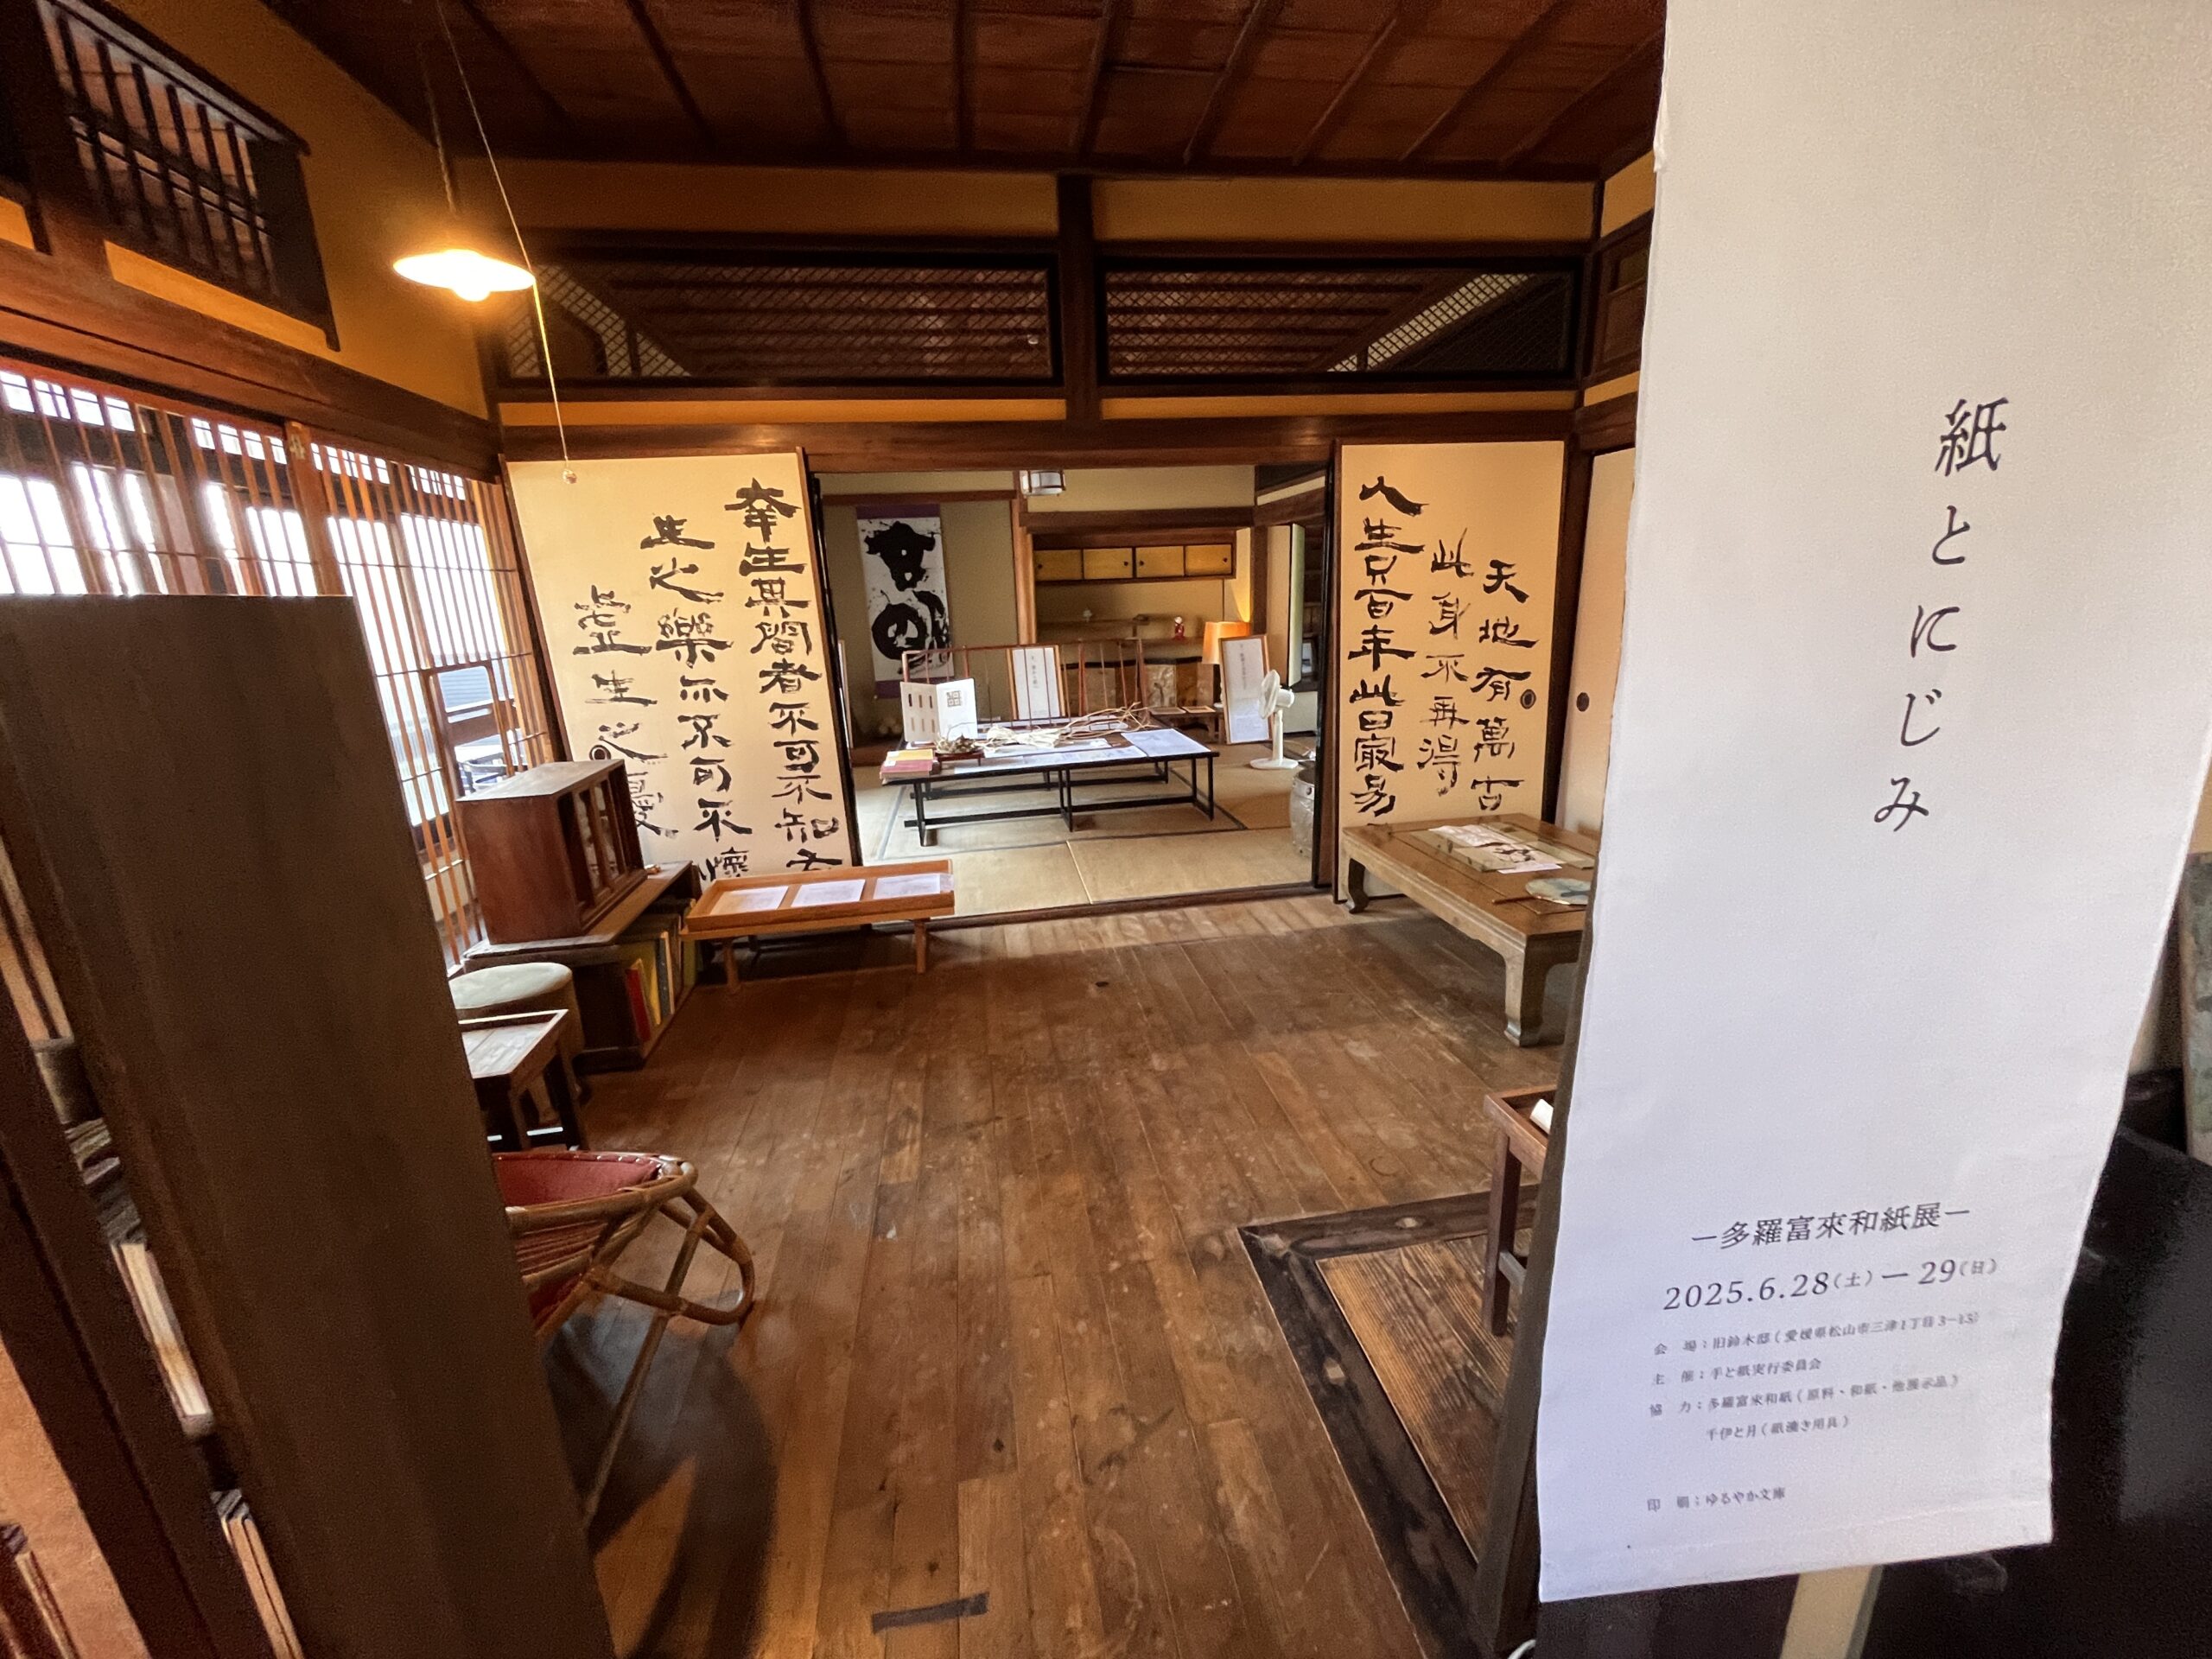 紙とにじみ
ー多羅富來和紙展ー
2025.6.28(土)ー29(日)
会　場：旧鈴木邸（愛媛県松山市三津1丁目3−15）
主　催：手と紙実行委員会
協　力：多羅富來和紙（原料、和紙・他展示品）
千伊と月（紙漉き用具）
印　刷：ゆるやか文庫
天地有萬古
此身不再得
人生只百年此日最易
幸生其間者不可不知有
生之樂亦不可不懐
虚生之憂